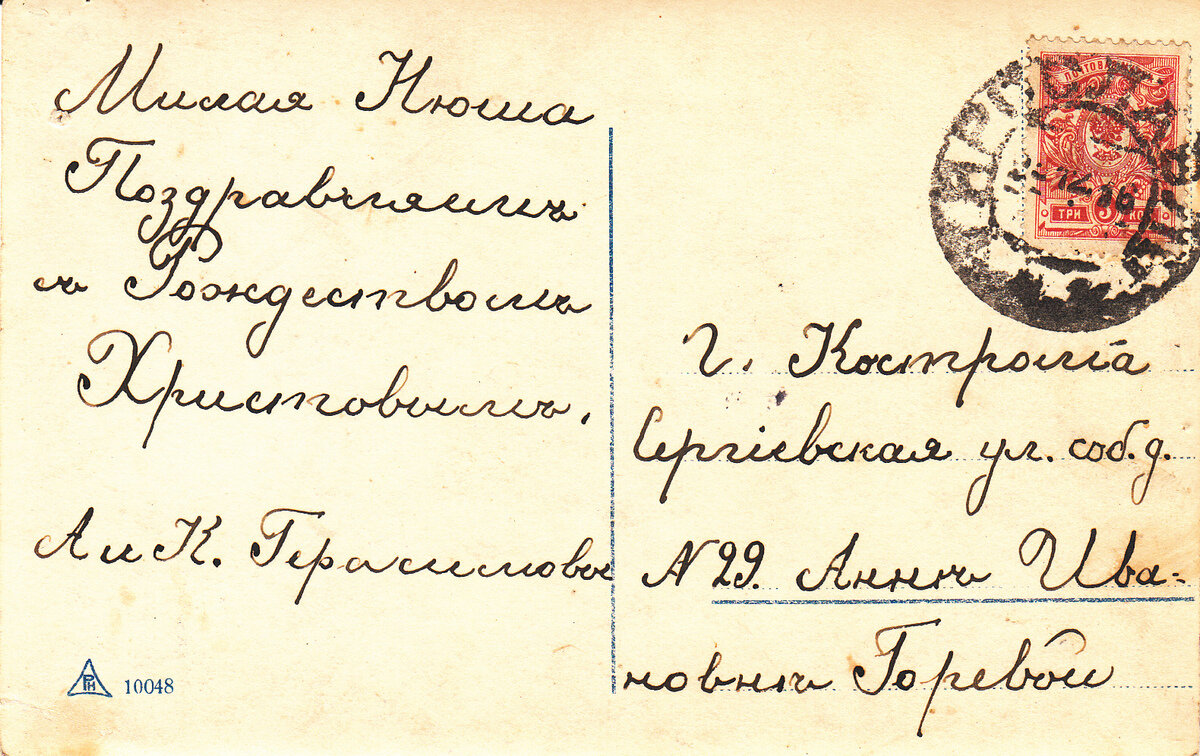 Милая Нюша
Поздравляемъ
съ Рождествомъ
Христовымъ.
А и К. Герасимовы
РН
10048
ПОЧТОВАЯ
ТРИ 3 КОП
12 16
Г. Кострома
Сергіевская ул. соб. д.
№ 29. Аннѣ Ива-
новнѣ Горевой